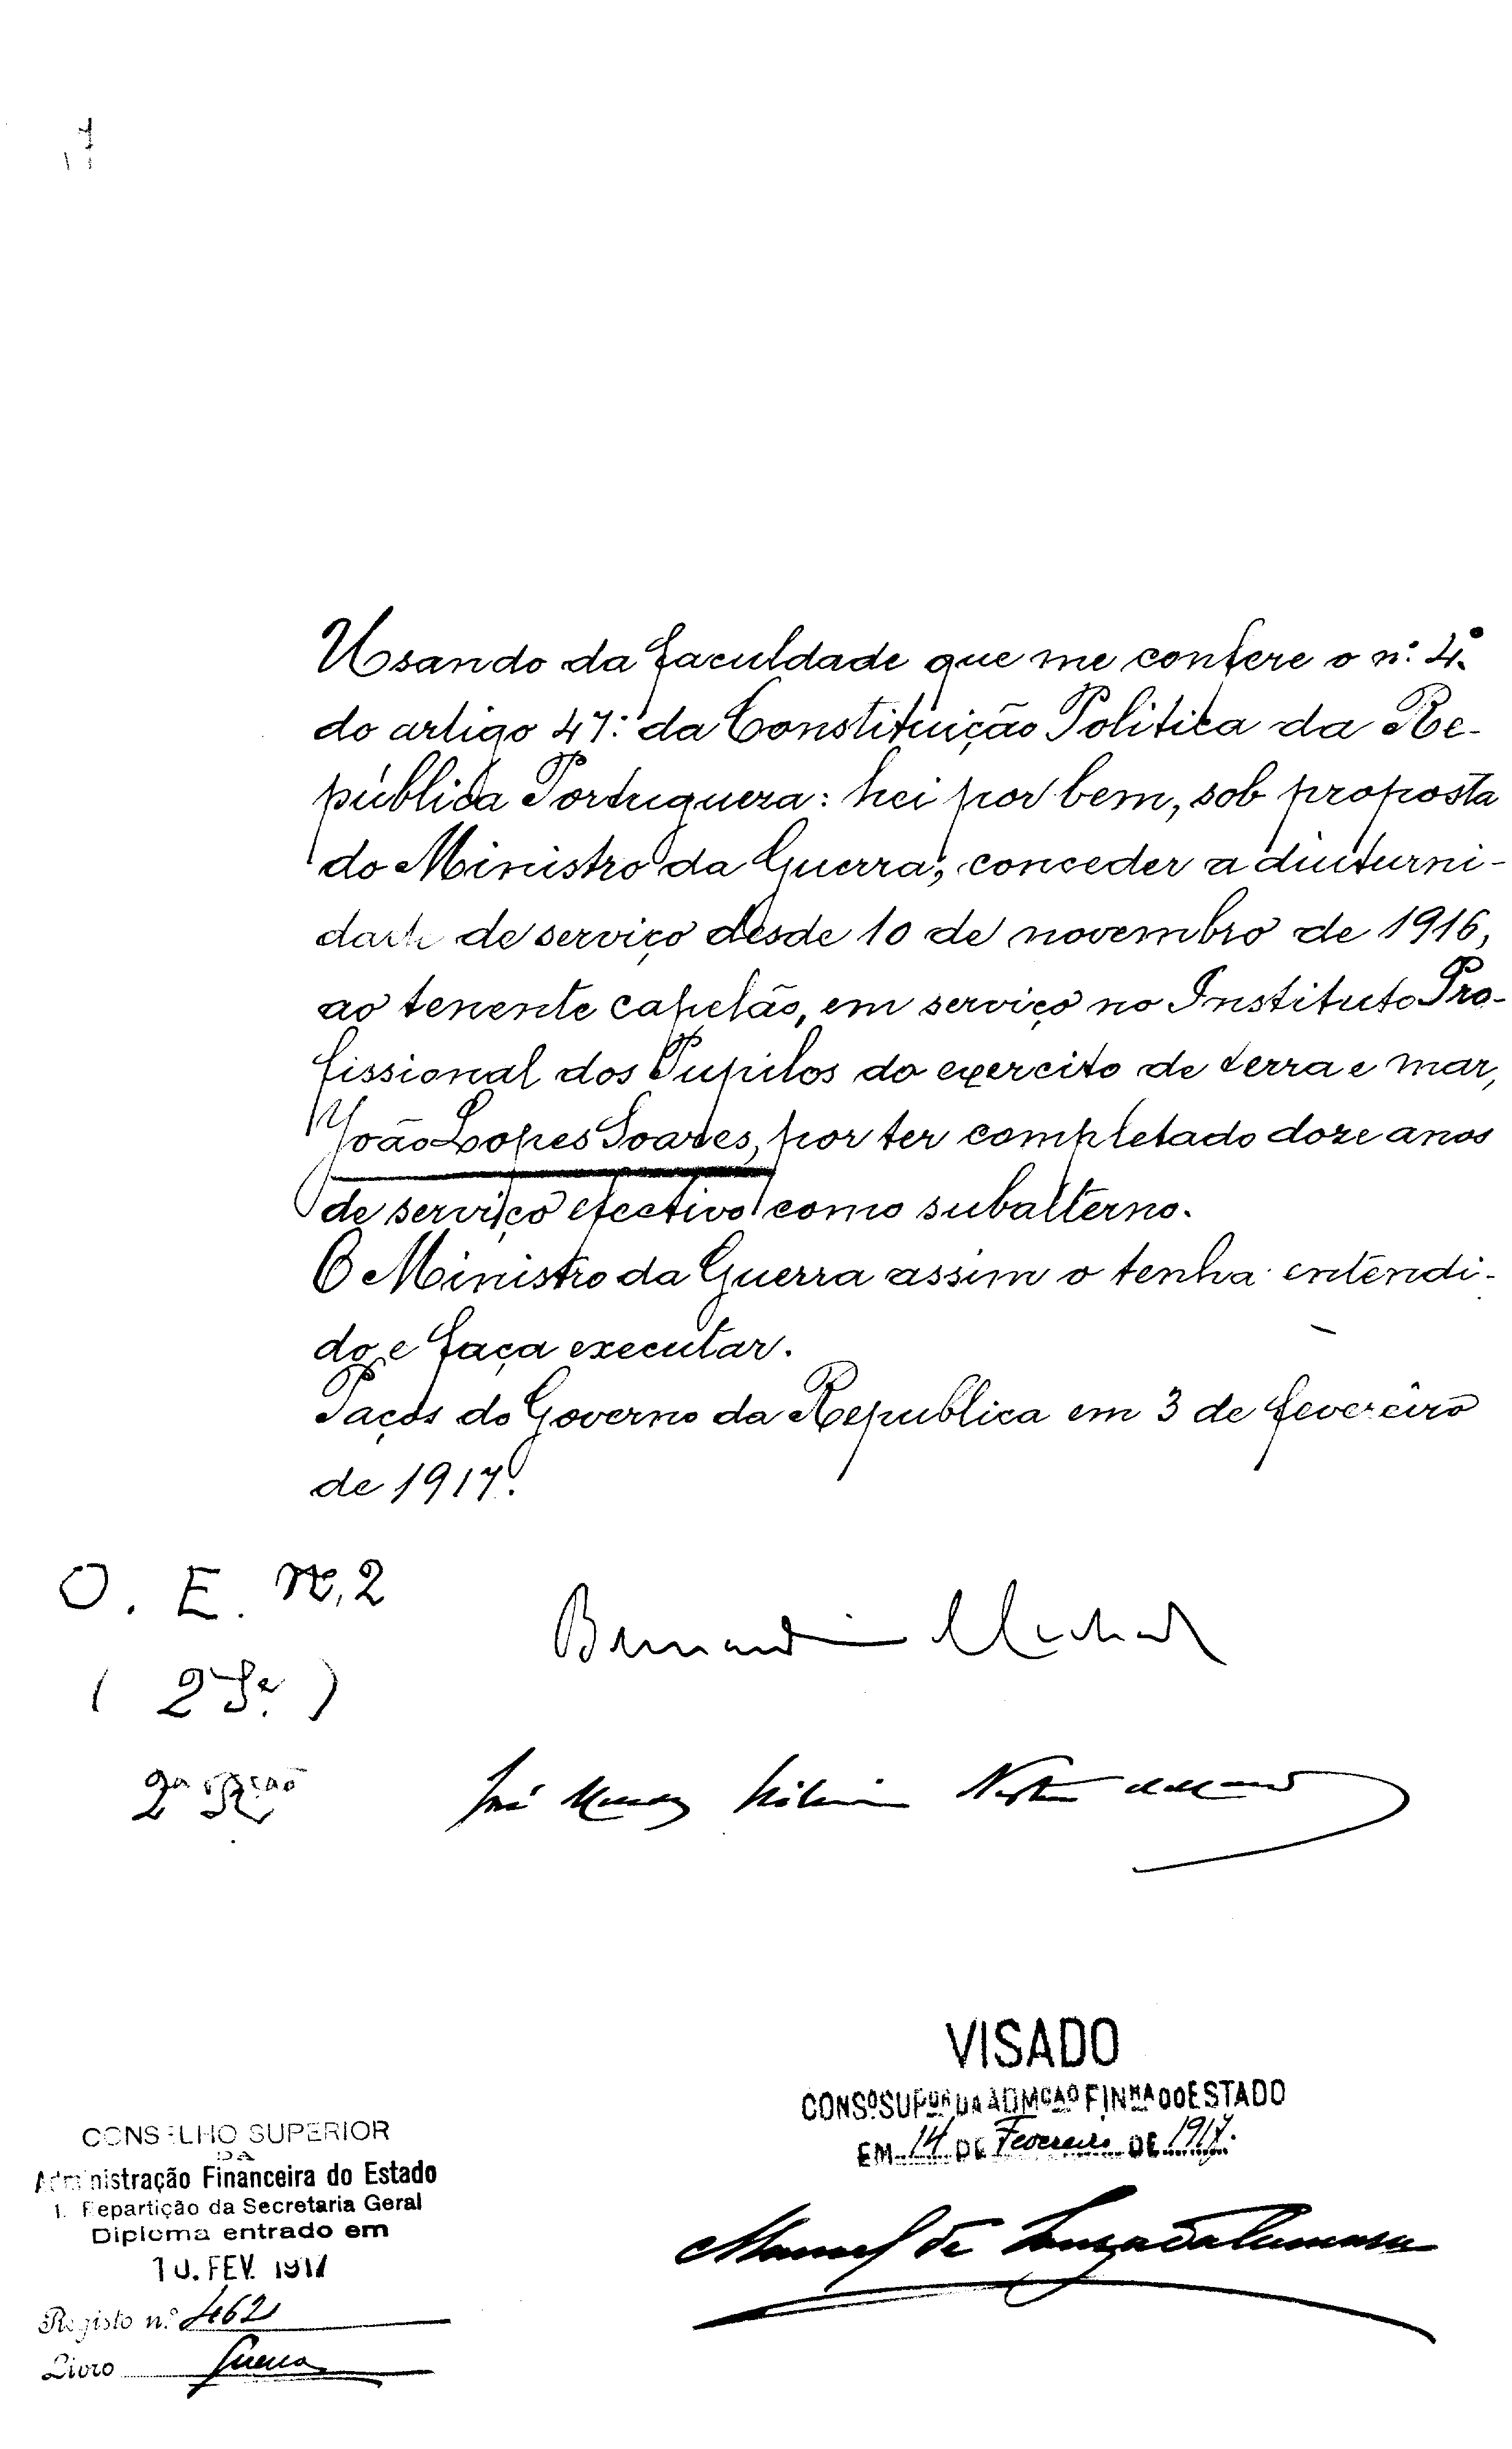 Usando da faculdade que me confere o nº 4º
do artigo 47º da Constituição Politica da Re-
pública Portugueza: hei por bem, sob proposta
do Ministro da Guerra, conceder a diuturni-
dade de serviço desde 10 de novembro de 1916,
ao tenente capelão, em serviço no Instituto Pro-
fissional dos Pupilos do exercito de terra e mar,
João Lopes Soares, por ter completado doze anos
de serviço efectivo como subalterno.
O Ministro da Guerra assim o tenha entendi-
do e faça executar.
Paços do Governo da Republica em 3 de fevereiro
de 1917.
O. E. Nº. 2
(2ª Se.)
2ª Rção
Bernardino Machado
José Mendes Ribeiro Norton de Matos
VISADO
CONSº SUPOR DA ADMÇAO FINRA DO ESTADO
EM 14 DE Fevereiro DE 1917.
CONSELHO SUPERIOR
DA
Administração Financeira do Estado
1. Repartição da Secretaria Geral
Diploma entrado em
10. FEV. 1917
Registo n.º 462
Livro Guerra
Manuel de Souza da Camara